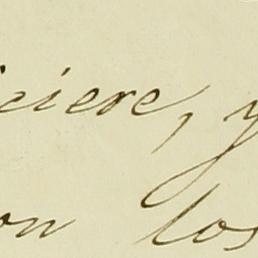 iciere, y
on los